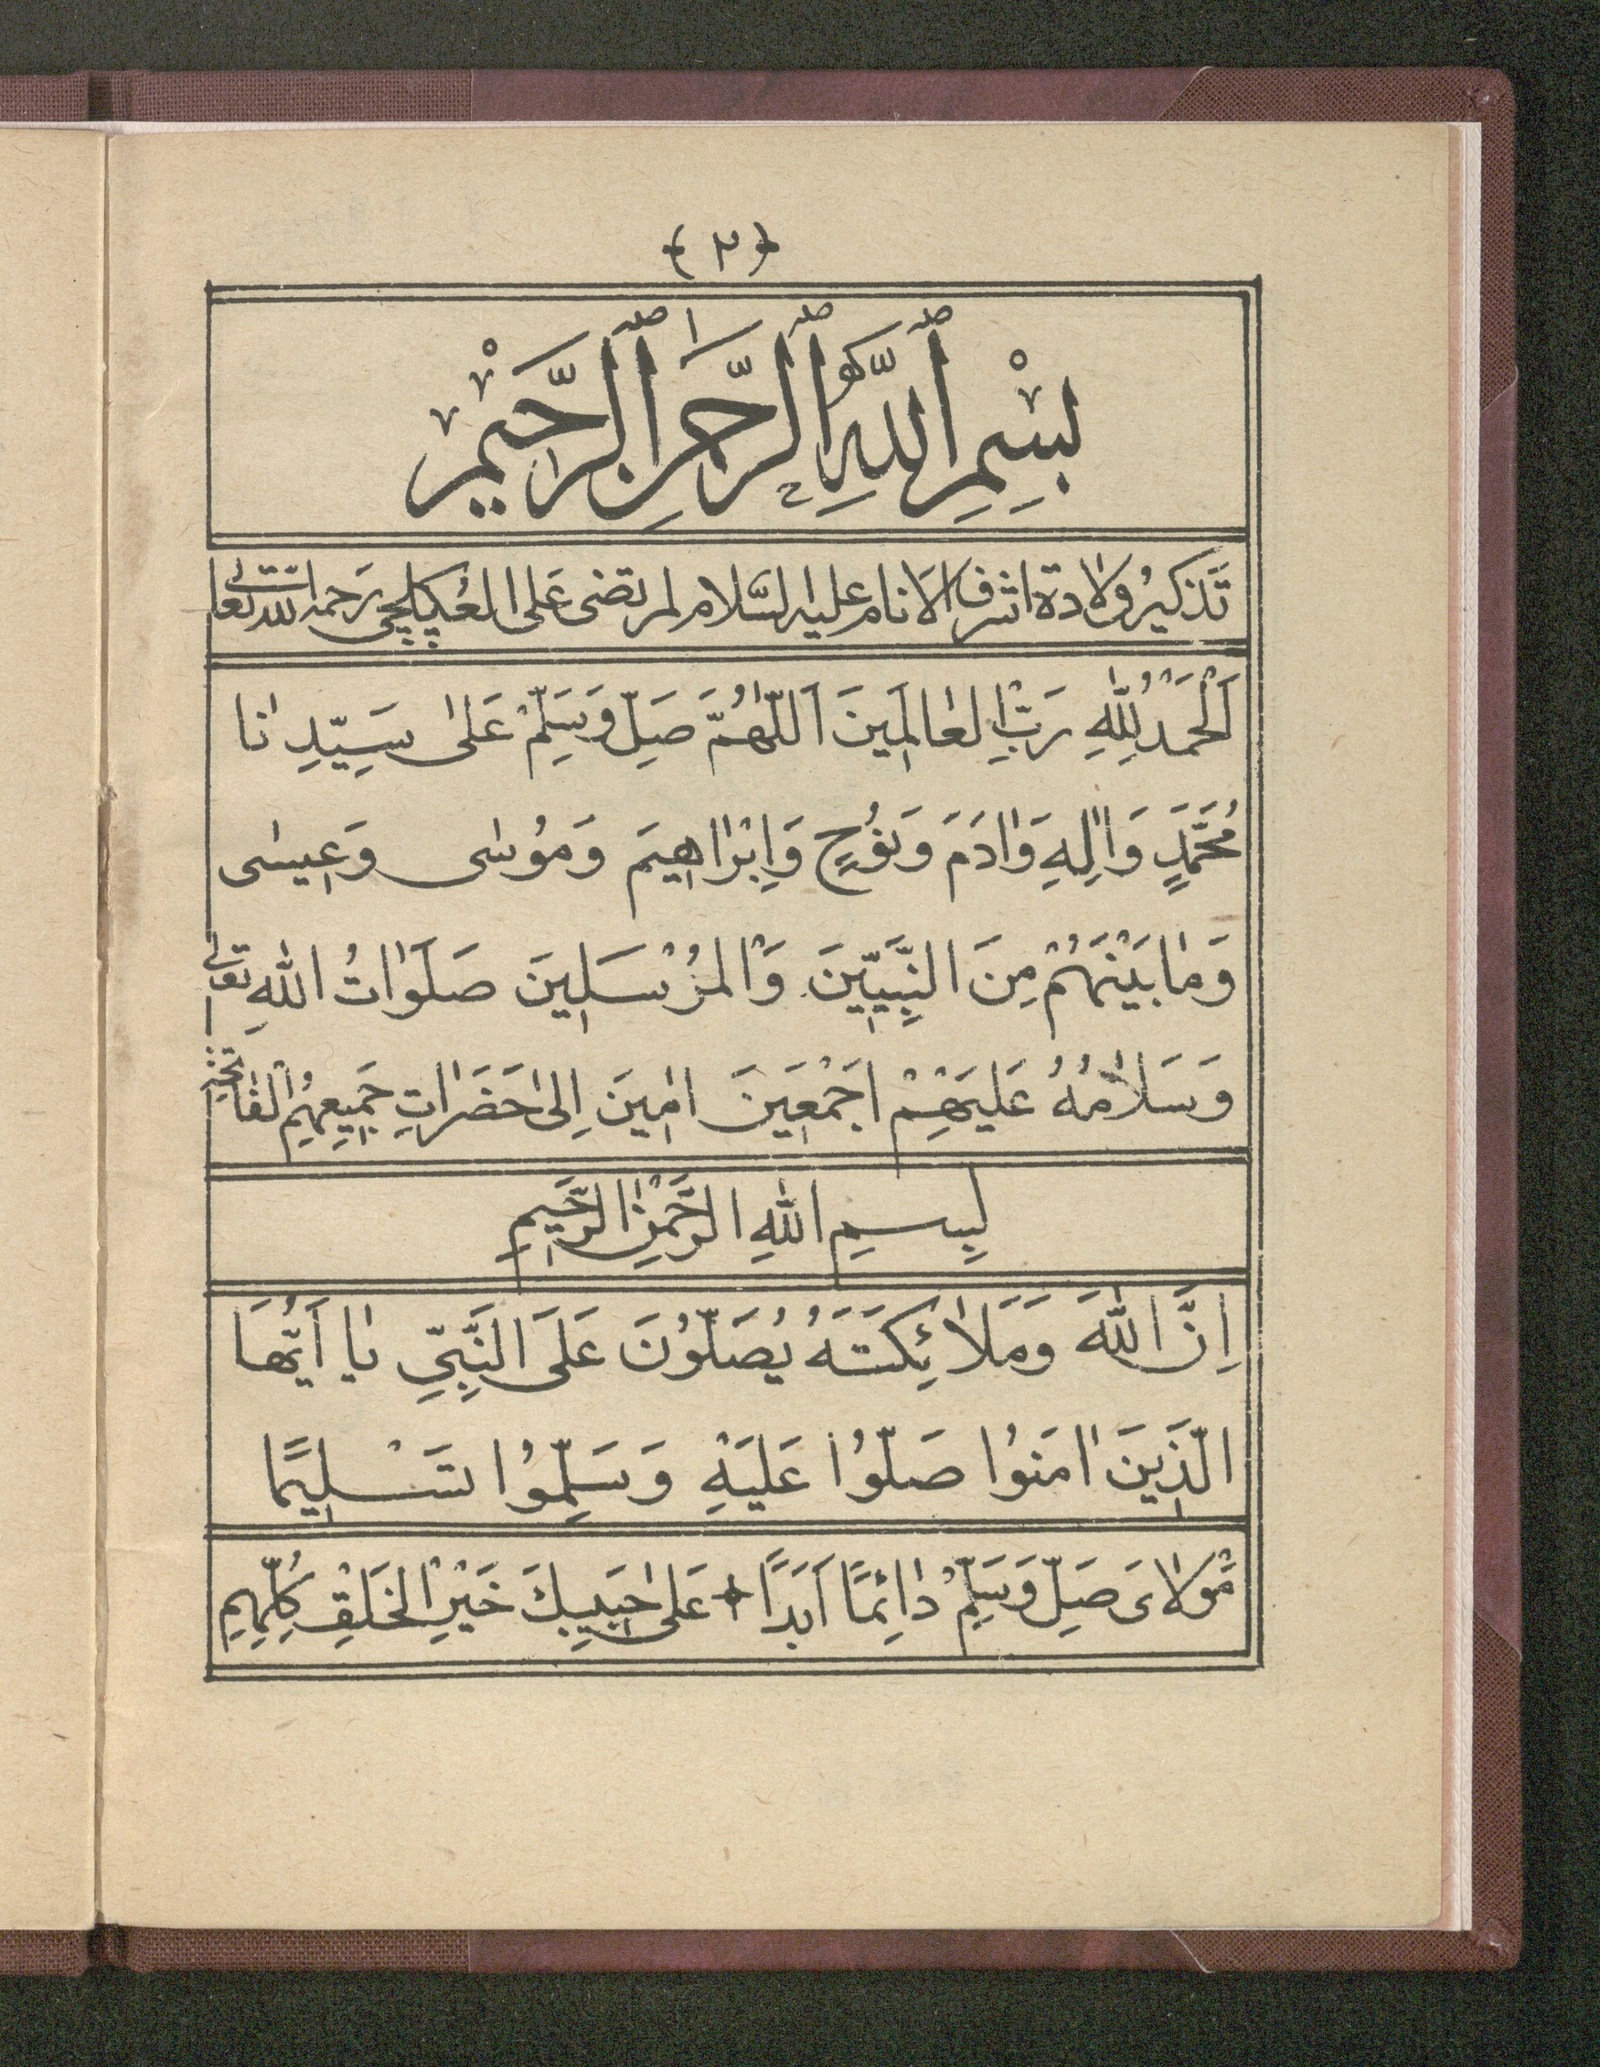 ﴿٢﴾
بِسْمِ ٱللَّهِ ٱلرَّحْمَٰنِ ٱلرَّحِيْمِ
تَذكيرُ ولادة اشرف الانام عليه السَّلام لمرتضى عَلى رَحمه الله تعالى
اَلْحَمْدُ لِلّٰهِ رَبِّ الْعٰالَمِينَ اَللّٰهُمَّ صَلِّ وَسَلِّمْ عَلٰى سَيِّدِنٰا
مُحَمَّدٍ وَاٰلِهِ وَاٰدَمَ وَنُوْحٍ وَاِبْرٰاهِيمَ وَمُوْسٰى وَعِيسٰى
وَمٰا بَيْنَهُمْ مِنَ النَّبِيّينَ وَالْمُرْسَلِينَ صَلَوٰاتُ اللّٰهِ تعالٰى
وَسَلٰامُهُ عَلَيْهِمْ اَجْمَعِينَ اٰمِينَ اِلىٰ حَضَرٰاتِ جَمِيعِهِمُ الْفٰاتحة
بِسمِ اللّٰهِ الرَّحْمٰنِ الرَّحِيمِ
اِنَّ اللّٰهَ وَمَلٰائِكَتَهُ يُصَلُّوْنَ عَلَى النَّبِيِّ يٰا اَيُّهَا
الَّذِينَ اٰمَنُوْا صَلُّوْا عَلَيْهِ وَسَلِّمُوْا تَسْلِيمًا
مَوْلاٰىَ صَلِّ وَسَلِّمْ دٰائِمًا اَبَدًا + عَلىٰ حَبِيبِكَ خَيْرِ الْخَلْقِ كُلِّهِمِ